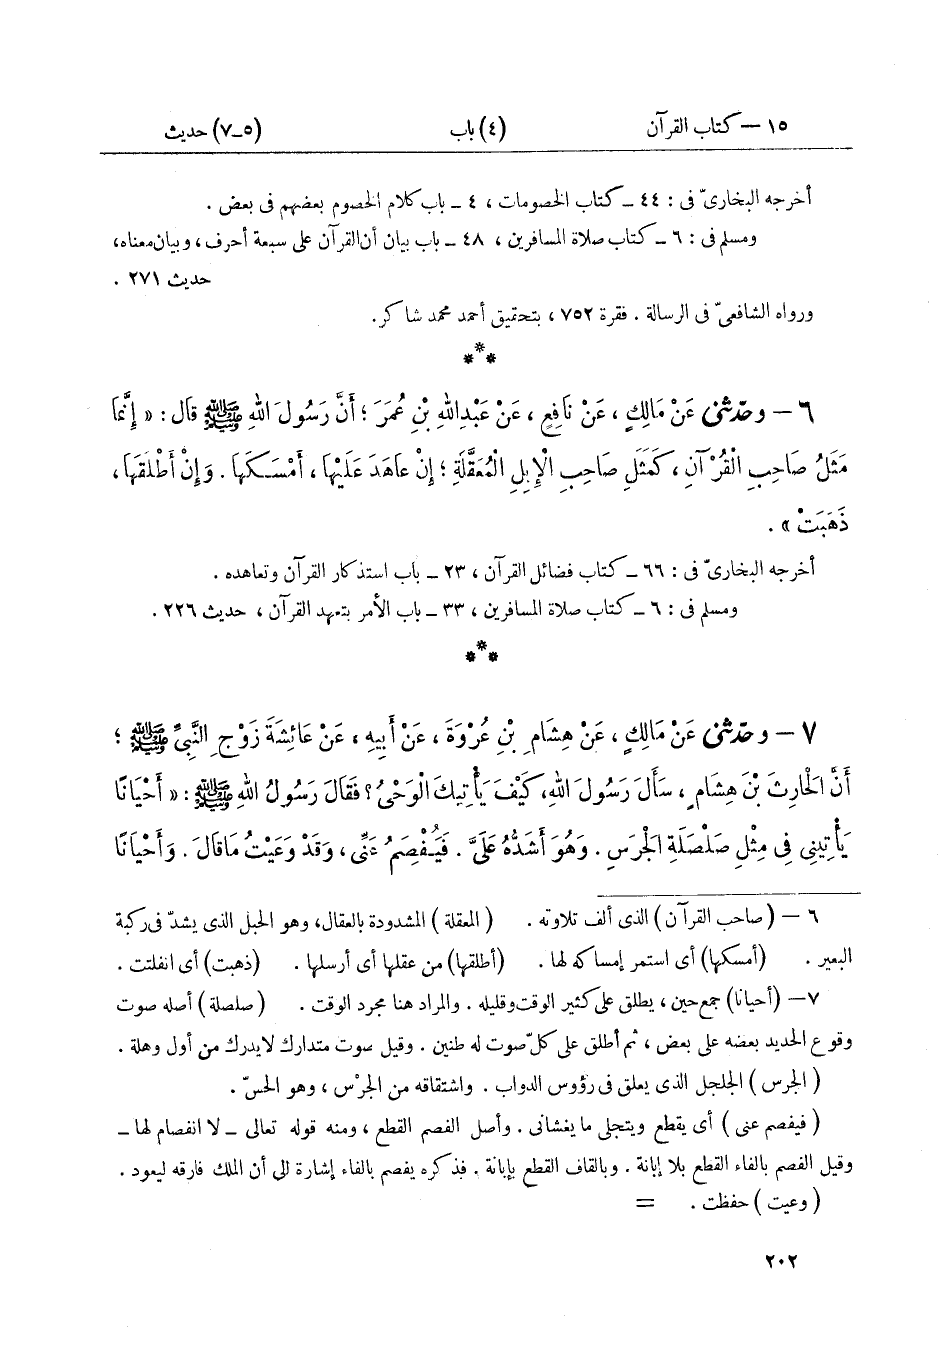 ١٥ – كتاب القرآن (٤) باب (٥ـ٧) حديث
أخرجه البخارىّ فى : ٤٤ ـ كتاب الخصومات ، ٤ ـ باب كلام الخصوم بعضهم فى بعض .
ومسلم فى : ٦ ـ كتاب صلاة المسافرين ، ٤٨ ـ باب بيان أن القرآن على سبعة أحرف ، وبيان معناه،
حديث ٢٧١ .
ورواه الشافعىّ فى الرسالة . فقرة ٧٥٢ ، بتحقيق أحمد محمد شاكر.
***
٦ – وحَدَّثَنِى عَنْ مَالِكٍ ، عَنْ نَافِعٍ ، عَنْ عَبْدِ اللهِ بْنِ عُمَرَ ؛ أَنَّ رَسُولَ اللهِ ﷺ قَالَ : « إِنَّمَا
مَثَلُ صَاحِبِ الْقُرْآنِ ، كَمَثَلِ صَاحِبِ الْإِبِلِ الْمُعَقَّلَةِ ؛ إِنْ عَاهَدَ عَلَيْهَا ، أَمْسَكَهَا . وَإِنْ أَطْلَقَهَا ،
ذَهَبَتْ » .
أخرجه البخارىّ فى : ٦٦ ـ كتاب فضائل القرآن ، ٢٣ ـ باب استذكار القرآن وتعاهده .
ومسلم فى : ٦ ـ كتاب صلاة المسافرين ، ٣٣ ـ باب الأمر بتعهد القرآن ، حديث ٢٢٦ .
***
٧ – وحَدَّثَنِى عَنْ مَالِكٍ ، عَنْ هِشَامِ بْنِ عُرْوَةَ ، عَنْ أَبِيهِ ، عَنْ عَائِشَةَ زَوْجِ النَّبِىِّ ﷺ ؛
أَنَّ الْحَارِثَ بْنَ هِشَامٍ ، سَأَلَ رَسُولَ اللهِ، كَيْفَ يَأْتِيكَ الْوَحْىُ ؟ فَقَالَ رَسُولُ اللهِ ﷺ : « أَحْيَانًا
يَأْتِينِى فِى مِثْلِ صَلْصَلَةِ الْجَرَسِ . وَهُوَ أَشَدُّهُ عَلَىَّ . فَيُفْصِمُ عَنِّى ، وَقَدْ وَعَيْتُ مَا قَالَ . وَأَحْيَانًا
٦ – (صاحب القرآن) الذى ألف تلاوته . (المعقلة) المشدودة بالعقال، وهو الحبل الذى يشدّ فى ركبة
البعير . (أمسكها) أى استمر إمساكه لها . (أطلقها) من عقلها أى أرسلها . (ذهبت) أى انفلتت .
٧ – (أحيانا) جمع حين ، يطلق على كثير الوقت وقليله . والمراد هنا مجرد الوقت . (صلصلة) أصله صوت
وقوع الحديد بعضه على بعض ، ثم أطلق على كلّ صوت له طنين . وقيل صوت متدارك لا يدرك من أول وهلة .
(الجرس) الجلجل الذى يعلق فى رؤوس الدواب . واشتقاقه من الجرْس ، وهو الحسّ .
(فيفصم عنى) أى يقطع ويتجلى ما يغشانى . وأصل الفصم القطع ، ومنه قوله تعالى ـ لا انفصام لها ـ
وقيل الفصم بالفاء القطع بلا إبانة . وبالقاف القطع بإبانة . فذكره يفصم بالفاء إشارة إلى أن الملك فارقه ليعود .
(وعيت) حفظت . =
٢٠٢